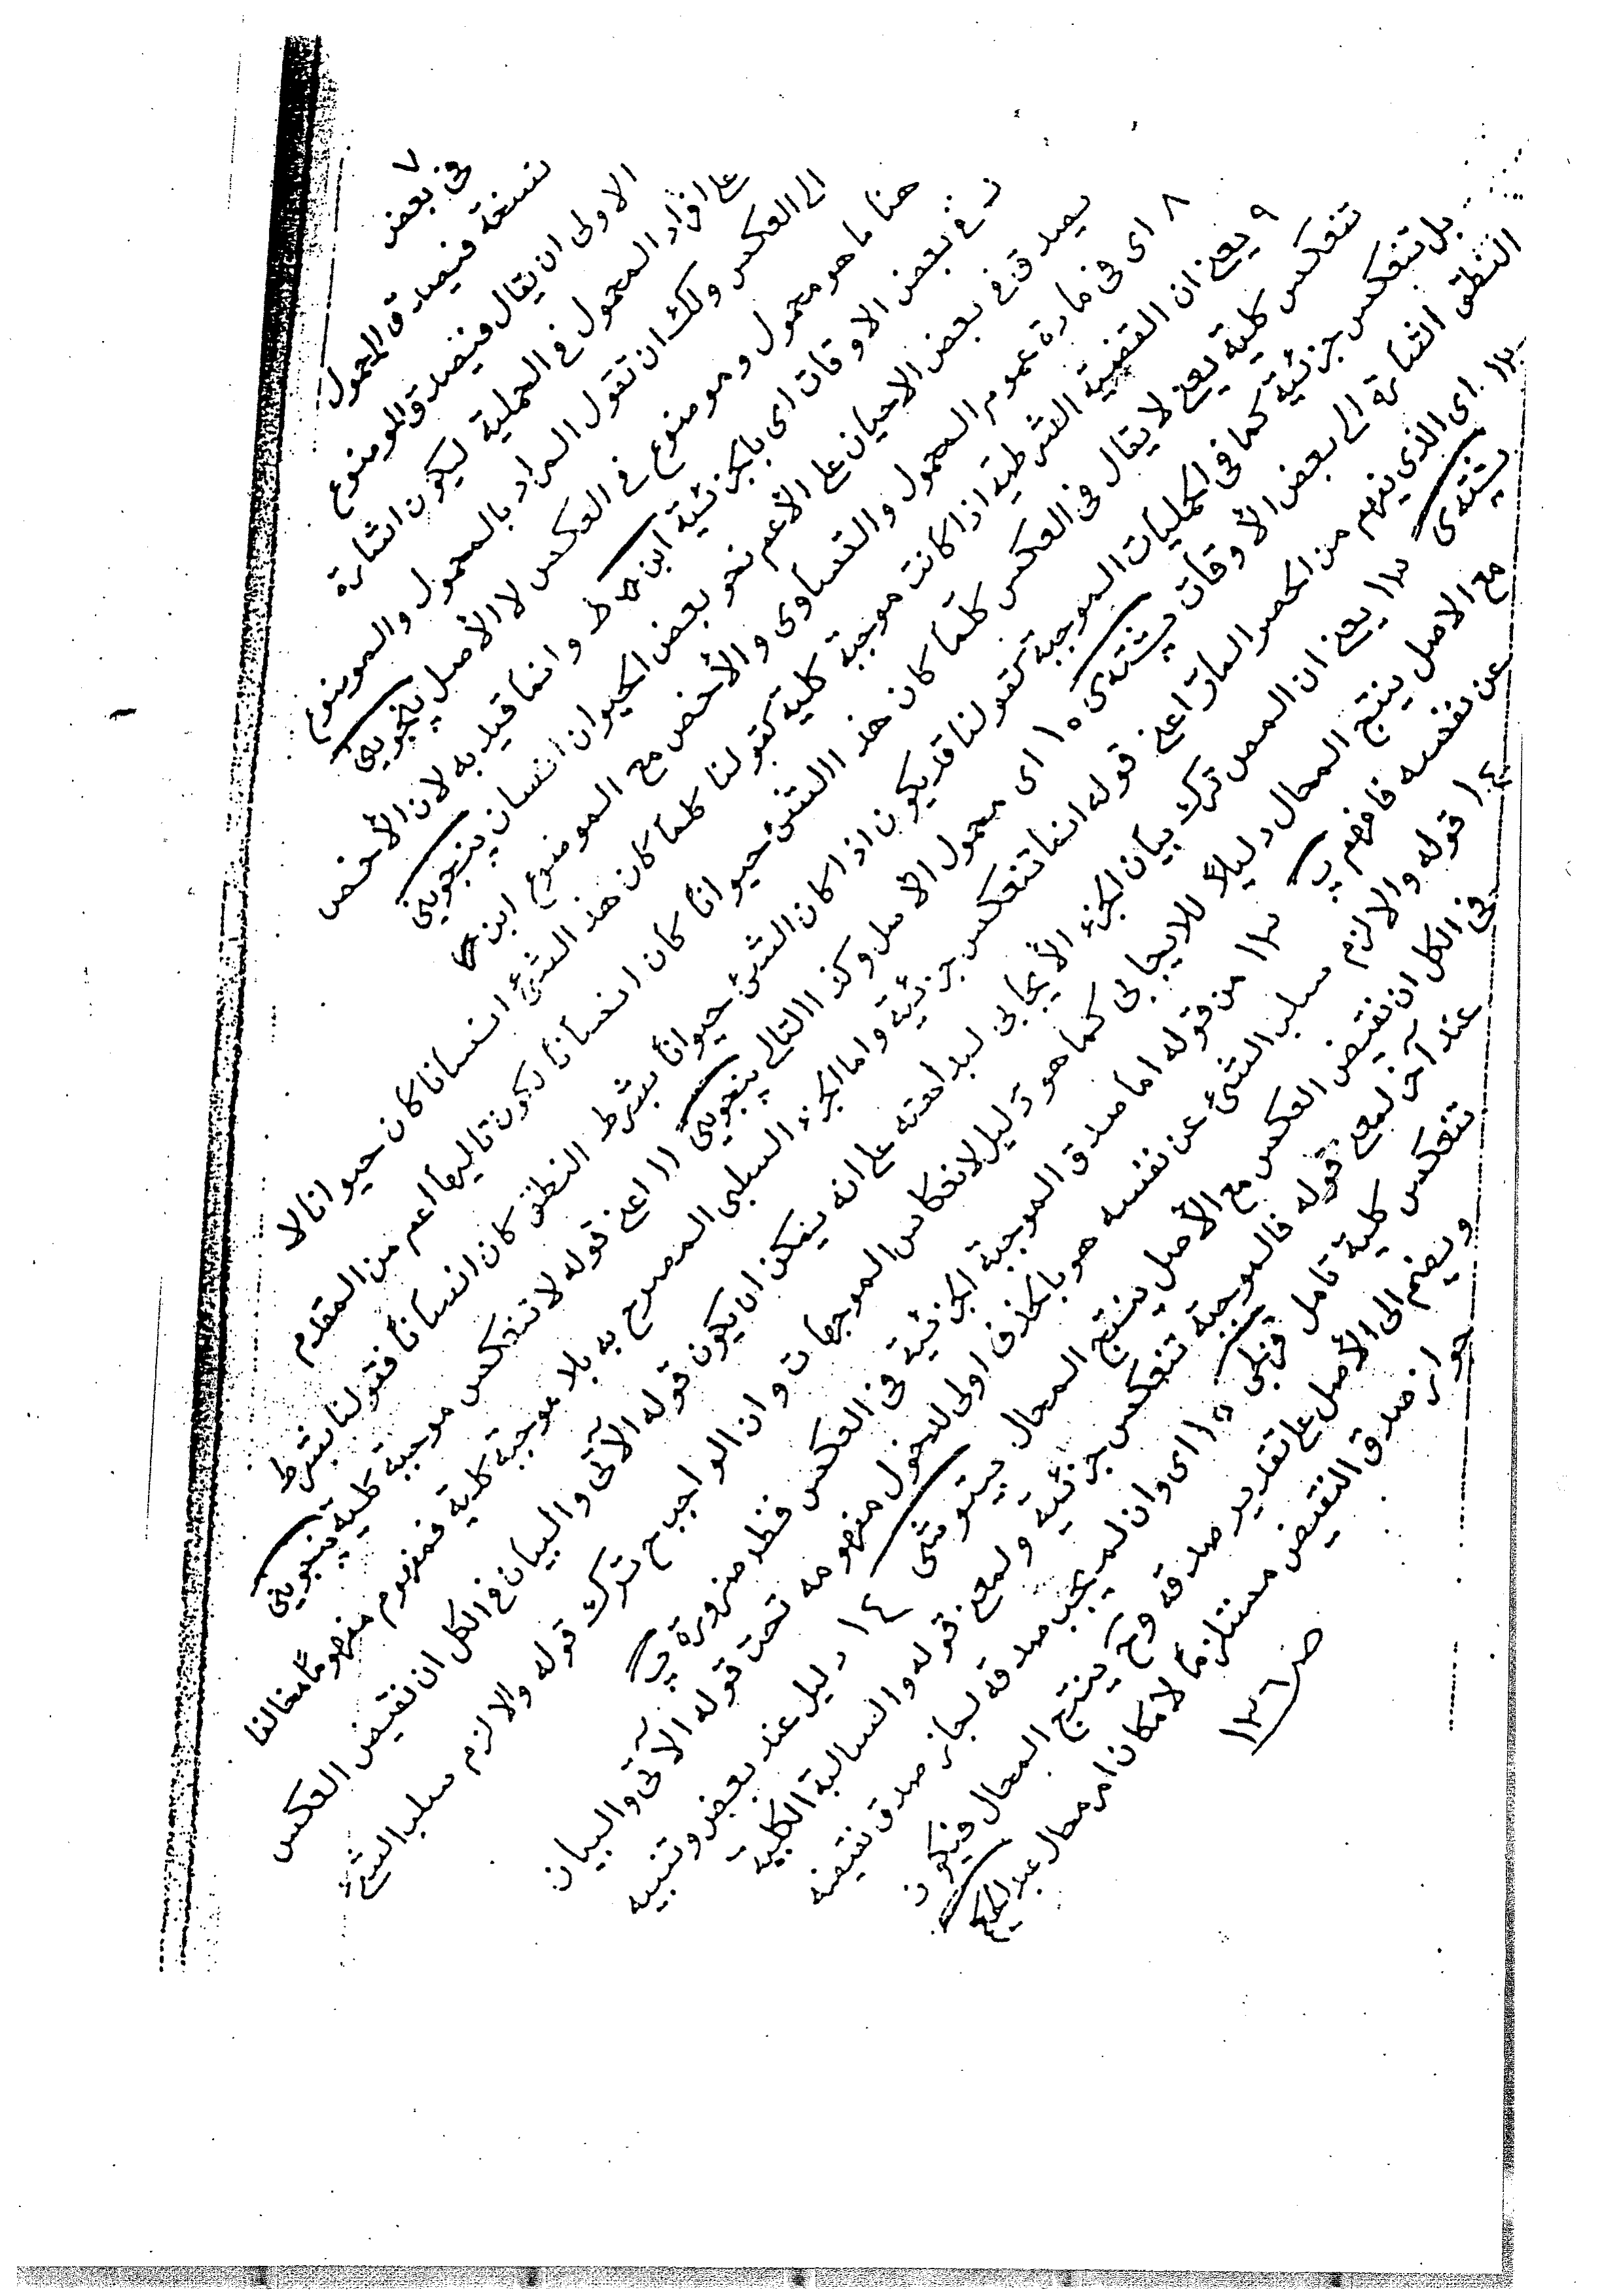 ٧ فى بعض
نسخة فيصدق المحمول
الاولى ان يقال فيصدق الموضوع
على افراد المحمول فى الحملية ليكون اشارة
الى العكس ولك ان تقول المراد بالمحمول والموضوع
هنا ما هو محمول وموضوع فى العكس لا الأصل پنجوينى
فى بعض الاوقات اى بالجزئية ابن وانما قيد به لان الأخص
يصدق فى بعض الاحيان على الأعم نحو بعض الحيوان انسان پنجوينى
٨ اى فى مادة عموم المحمول والتساوى والأخص مع الموضوع ابن
٩ يعنى ان القضية الشرطية اذا كانت موجبة كلية كقولنا كلما كان هذا الشئ انسانا كان حيوانا لا
تنعكس كلية يعنى لا يقال فى العكس كلما كان هذا الشئ حيوانًا كان انسانًا لكون تاليها اعم من المقدم
بل تنعكس جزئية كما فى الحمليات الموجبة كقولنا قد يكون اذا كان الشئ حيوانًا بشرط النطق كان انسانًا فقولنا بشرط
النطق اشارة الى بعض الأوقات پشتهى ١٠ اى محمول الأصل وكذا التالى پنجوينى ١١ اعنى قوله لا تنعكس موجبة كلية پنجوينى
١٢ اى الذى يفهم من الحصر المار اعنى قوله انما تنعكس جزئية واما الجزء السلبى المصرح به بلا موجبة كلية فمفهوم مفهومًا مخالفا
پشتهى ١٣ يعنى ان المص ترك بيان الجزء الأيجابى لبداهته على انه يمكن ان يكون قوله الآتى والبيان فى الكل ان نقيض العكس
مع الاصل ينتج المحال دليلًا للايجابى كما هو دليل لانعكاس الموجهات وان الواجب ح ترك قوله والا لزم سلب الشئ
عن نفسه فافهم ١٣ من قوله اما صدق الموجبة الجزئية فى العكس فظ ضرورة
١٤ قوله والا لزم سلب الشئ عن نفسه هو بالحذف اولى لدخول مفهومه تحت قوله الآتى والبيان
فى الكل ان نقيض العكس مع الأصل ينتج المحال بيتوشى ١٤ دليل عند بعض وتنبيه
عند آخر لمع قوله فالموجبة تنعكس جزئية ولمع قوله والسالبة الكلية
تنعكس كلية تامل قزلجى ١٥ اى وان لم يجب صدقه لجاز صدق نقيضه
ويضم الى الأصل على تقدير صدقه وح ينتج المحال فيكون
جواز صدق النقيض مستلزمًا لامكان امر محال
ص ١٣٦